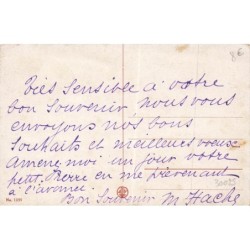 8€
Très sensible à votre
bon souvenir nous vous
envoyons nos bons
souhaits et meilleurs voeux
amenez moi un jour votre
petit Pierre en me prévenant
à l'avance
Bon Souvenir M Hache